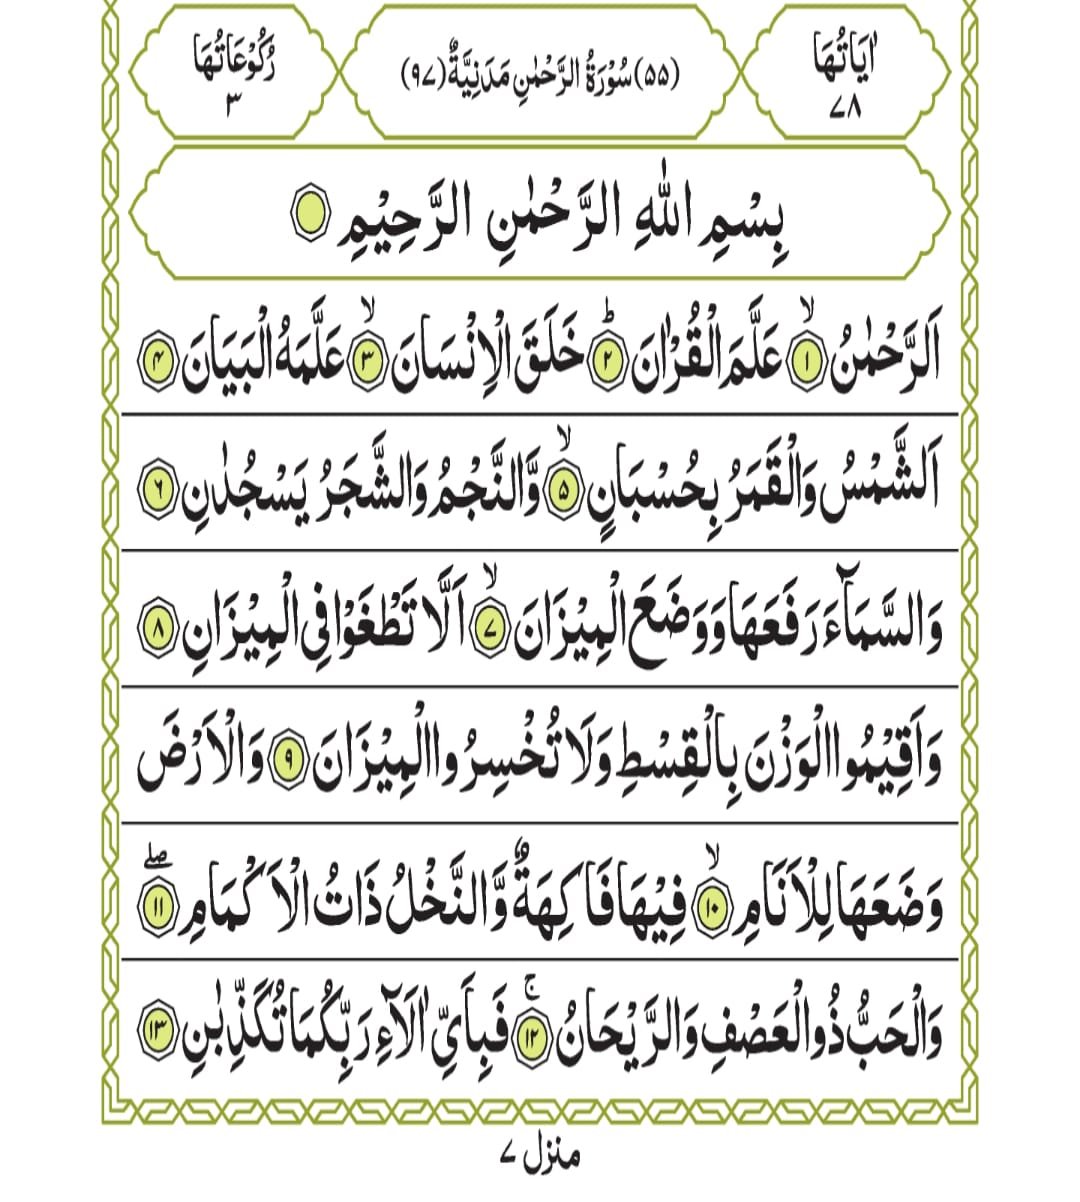 اٰيَاتُهَا ٧٨
(٥٥) سُوْرَةُ الرَّحْمٰنِ مَدَنِيَّةٌ (٩٧)
رُكُوْعَاتُهَا ٣
بِسْمِ اللّٰهِ الرَّحْمٰنِ الرَّحِيْمِ
اَلرَّحْمٰنُ ۙ﴿١﴾ عَلَّمَ الْقُرْاٰنَ ؕ﴿٢﴾ خَلَقَ الْاِنْسَانَ ۙ﴿٣﴾ عَلَّمَهُ الْبَيَانَ ﴿٤﴾
اَلشَّمْسُ وَالْقَمَرُ بِحُسْبَانٍ ۙ﴿٥﴾ وَّالنَّجْمُ وَالشَّجَرُ يَسْجُدٰنِ ﴿٦﴾
وَالسَّمَآءَ رَفَعَهَا وَوَضَعَ الْمِيْزَانَ ۙ﴿٧﴾ اَلَّا تَطْغَوْا فِى الْمِيْزَانِ ﴿٨﴾
وَاَقِيْمُوا الْوَزْنَ بِالْقِسْطِ وَلَا تُخْسِرُوا الْمِيْزَانَ ﴿٩﴾ وَالْاَرْضَ
وَضَعَهَا لِلْاَنَامِ ۙ﴿١٠﴾ فِيْهَا فَاكِهَةٌ وَّالنَّخْلُ ذَاتُ الْاَكْمَامِ ۖ﴿١١﴾
وَالْحَبُّ ذُو الْعَصْفِ وَالرَّيْحَانُ ۚ﴿١٢﴾ فَبِاَىِّ اٰلَآءِ رَبِّكُمَا تُكَذِّبٰنِ ﴿١٣﴾
منزل ٧